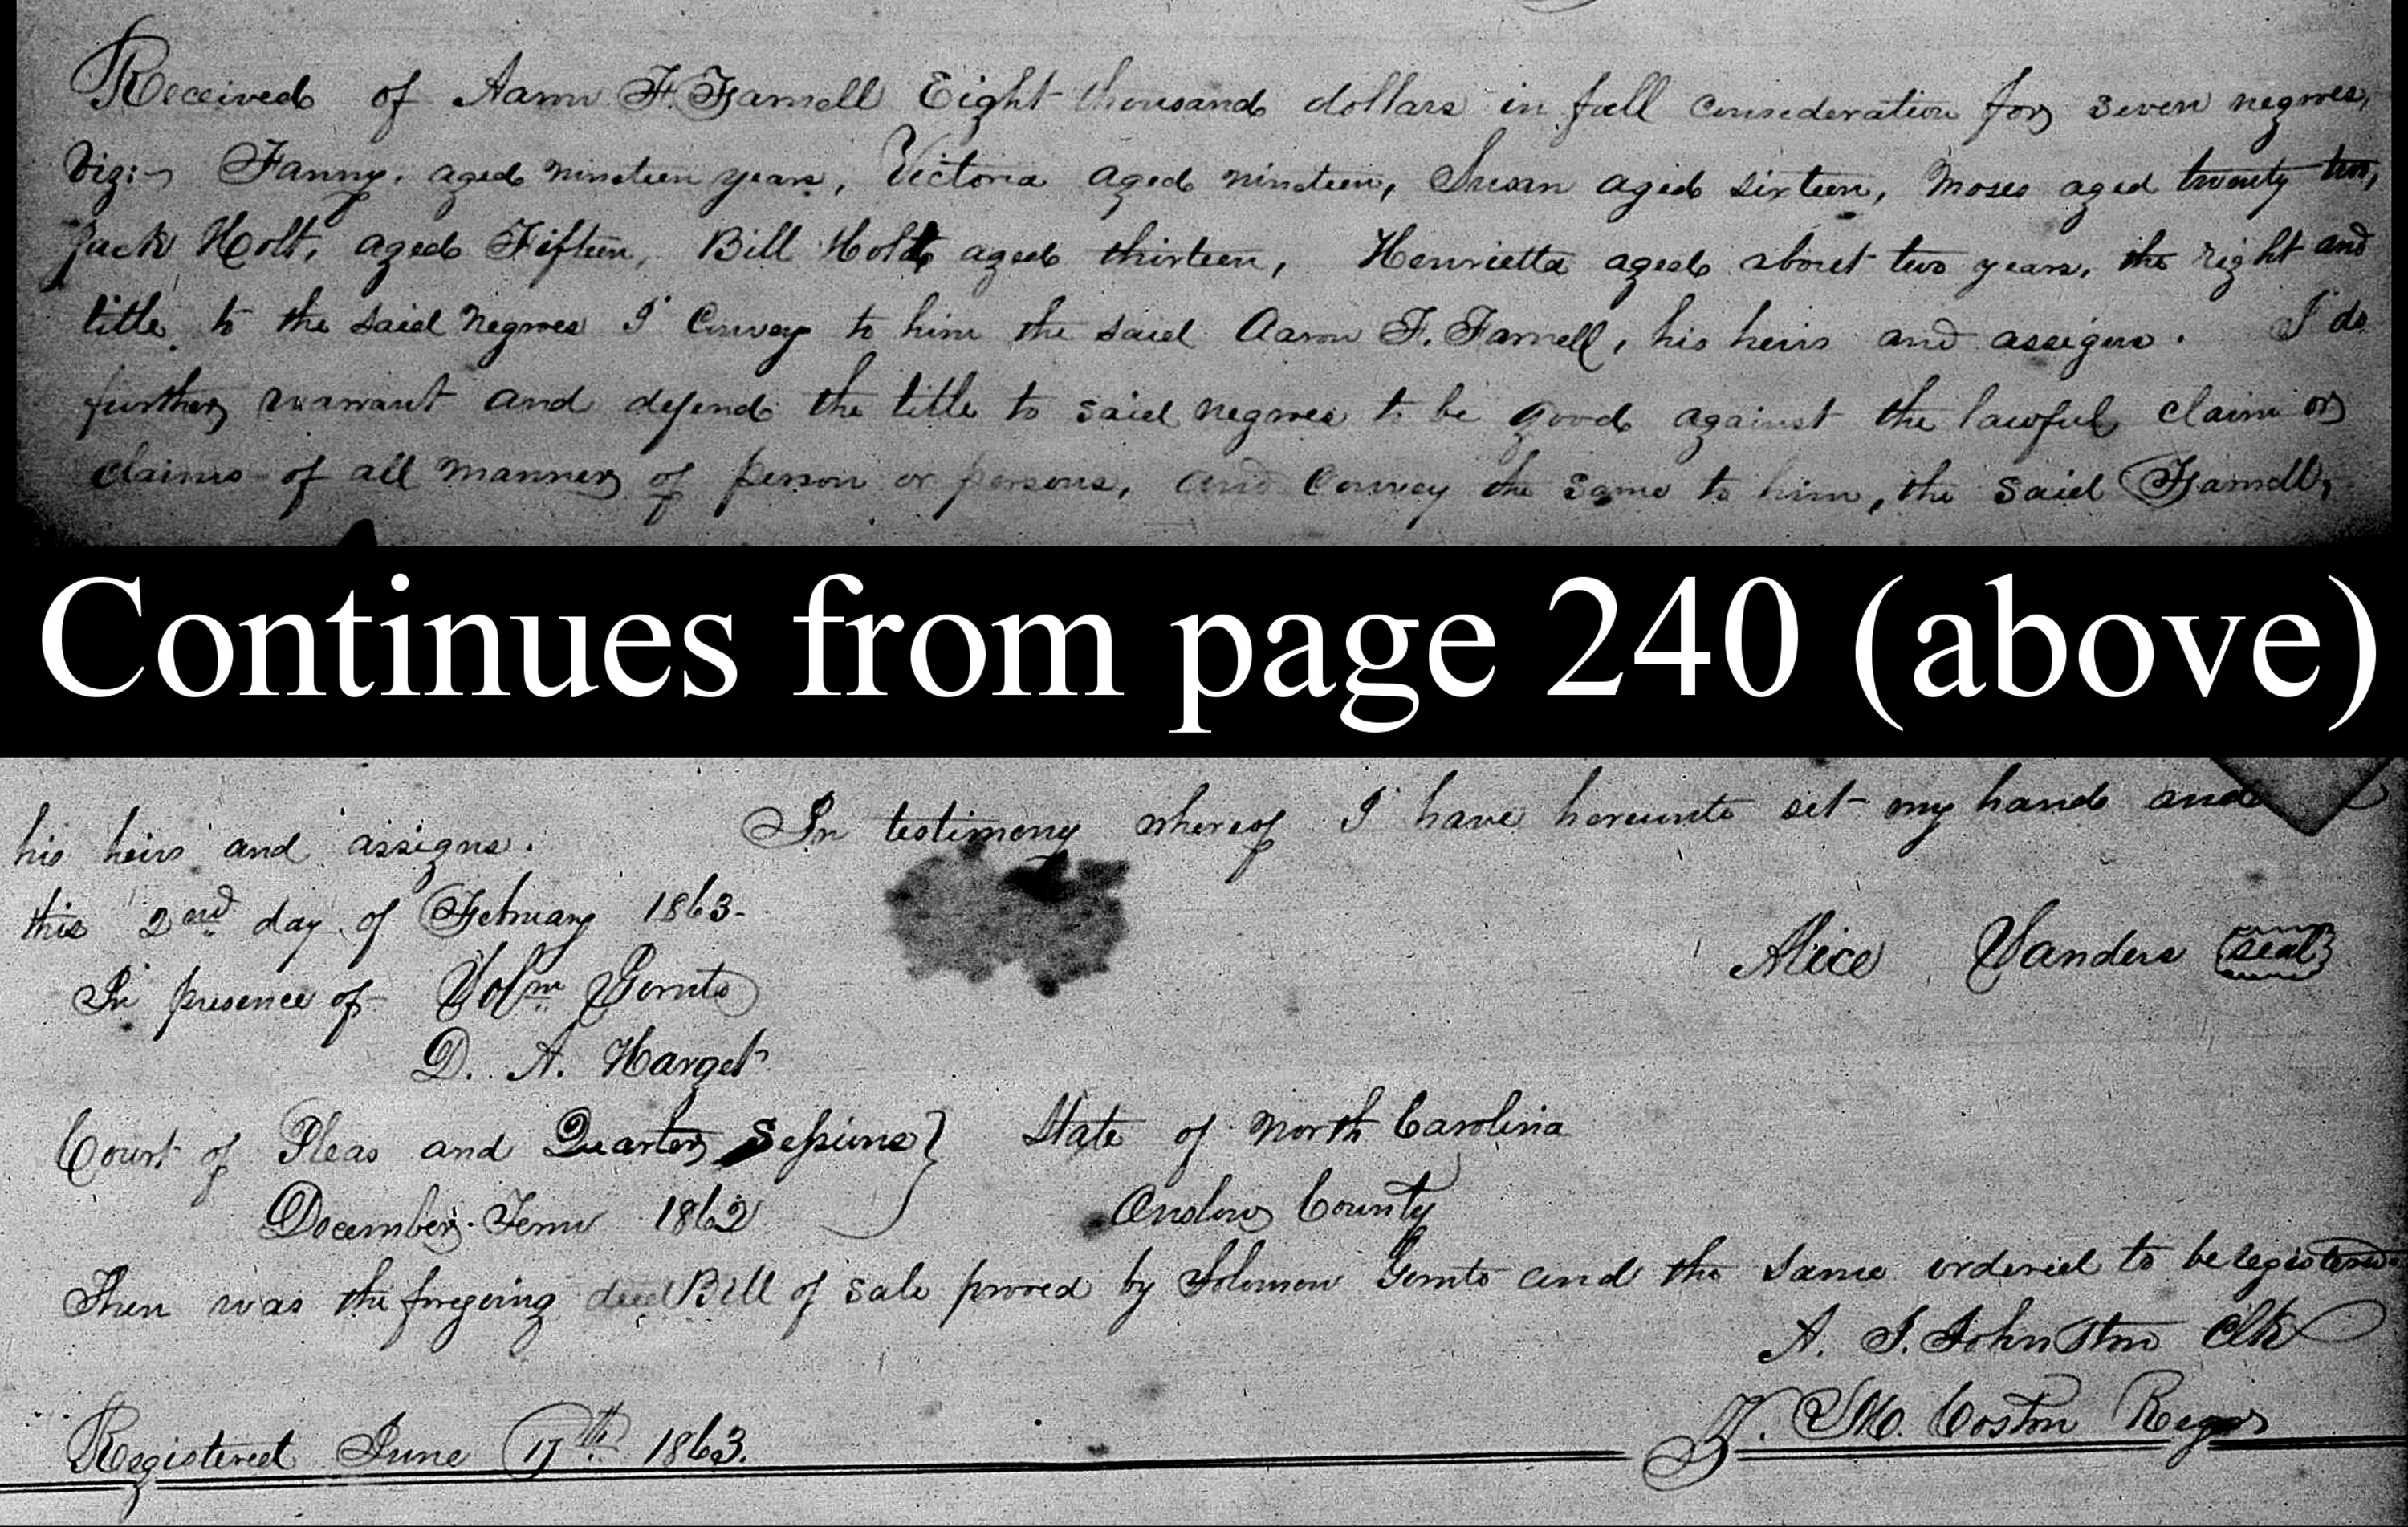 Received of Aaron F. Farnell Eight thousand dollars in full consideration for seven negroes,
Viz:- Fanny, aged nineteen years, Victoria aged nineteen, Susan aged sixteen, Moses aged twenty two,
Jack Holt, aged Fifteen, Bill Holt aged thirteen, Henrietta aged about two years, the right and
title to the said negroes I Convey to him the said Aaron F. Farnell, his heirs and assigns. I do
further warrant and defend the title to said negroes to be good against the lawful claim or
claims of all manner of person or persons, and Convey the same to him, the said Farnell,
Continues from page 240 (above)
his heirs and assigns. In testimony whereof I have hereunto set my hand and
this 2nd day of February 1863.
Alice Sanders seal
In presence of Solm Gornto
D. A. Harget
Court of Pleas and Quarter Sessions } State of North Carolina
December Term 1862 Onslow County
Then was the foregoing deed Bill of sale proved by Solomon Gornto and the same ordered to be registered.
A. J. Johnston Clk
Registered June 17th 1863. M. Coston Regr